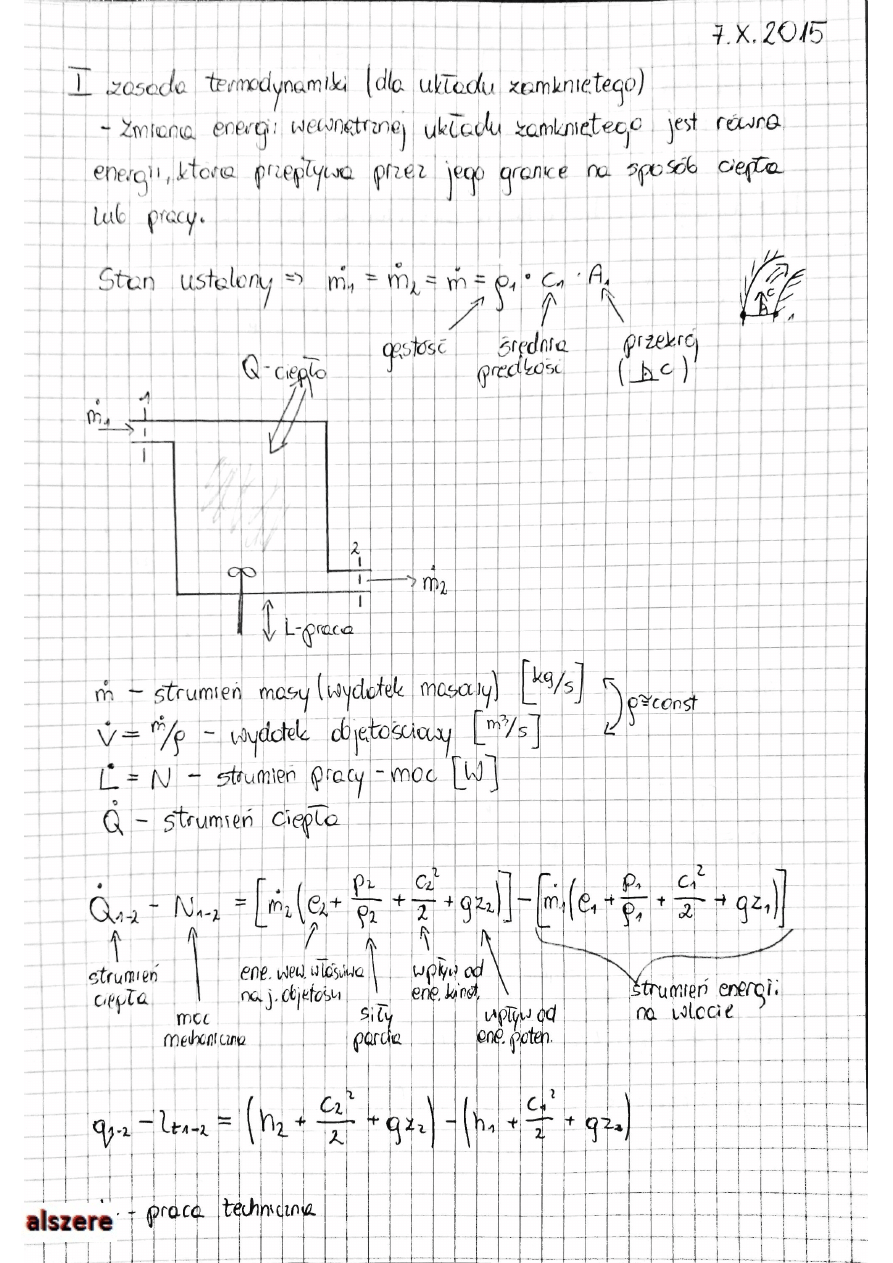 7.X.2015
I zasada termodynamiki (dla układu zamkniętego)
- Zmiana energii wewnętrznej układu zamkniętego jest równa
energii, która przepływa przez jego granice na sposób ciepła
lub pracy.
Stan ustalony => ṁ₁ = ṁ₂ = ṁ = ρ₁ · C₁ · A₁
gęstość
średnia
prędkość
przekrój
(⊥ C)
C
1
Q-ciepło
ṁ₁
1
2
ṁ₂
L-praca
ṁ - strumień masy (wydatek masowy) [kg/s]
ρ≅const
V̇ = ṁ/ρ - wydatek objętościowy [m³/s]
L̇ = N - strumień pracy - moc [W]
Q̇ - strumień ciepła
Q̇₁₋₂ - N₁₋₂ = [ṁ₂(e₂ + p₂/ρ₂ + c₂²/2 + gz₂)] - [ṁ₁(e₁ + p₁/ρ₁ + c₁²/2 + gz₁)]
strumień
ciepła
moc
mechaniczna
ene. wew. właściwa
na j. objętości
siły
parcia
wpływ od
ene. kinet.
wpływ od
ene. poten.
strumień energii
na wlocie
q₁₋₂ - lt₁₋₂ = (h₂ + c₂²/2 + gz₂) - (h₁ + c₁²/2 + gz₁)
- praca techniczna
alszere